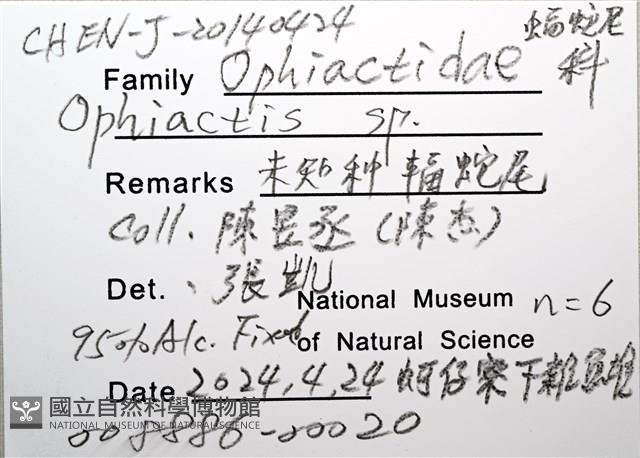 CHEN-J-20140424
輻蛇尾科
Family Ophiactidae
Ophiactis sp.
Remarks 未知种 輻蛇尾
Coll. 陳昱丞 (陳杰)
Det. 、張凱
National Museum n=6
95% Alc. Fixed of Natural Science
Date 2024,4,24 蚵仔寮下雜魚
國立自然科學博物館
NATIONAL MUSEUM OF NATURAL SCIENCE
008886-00020